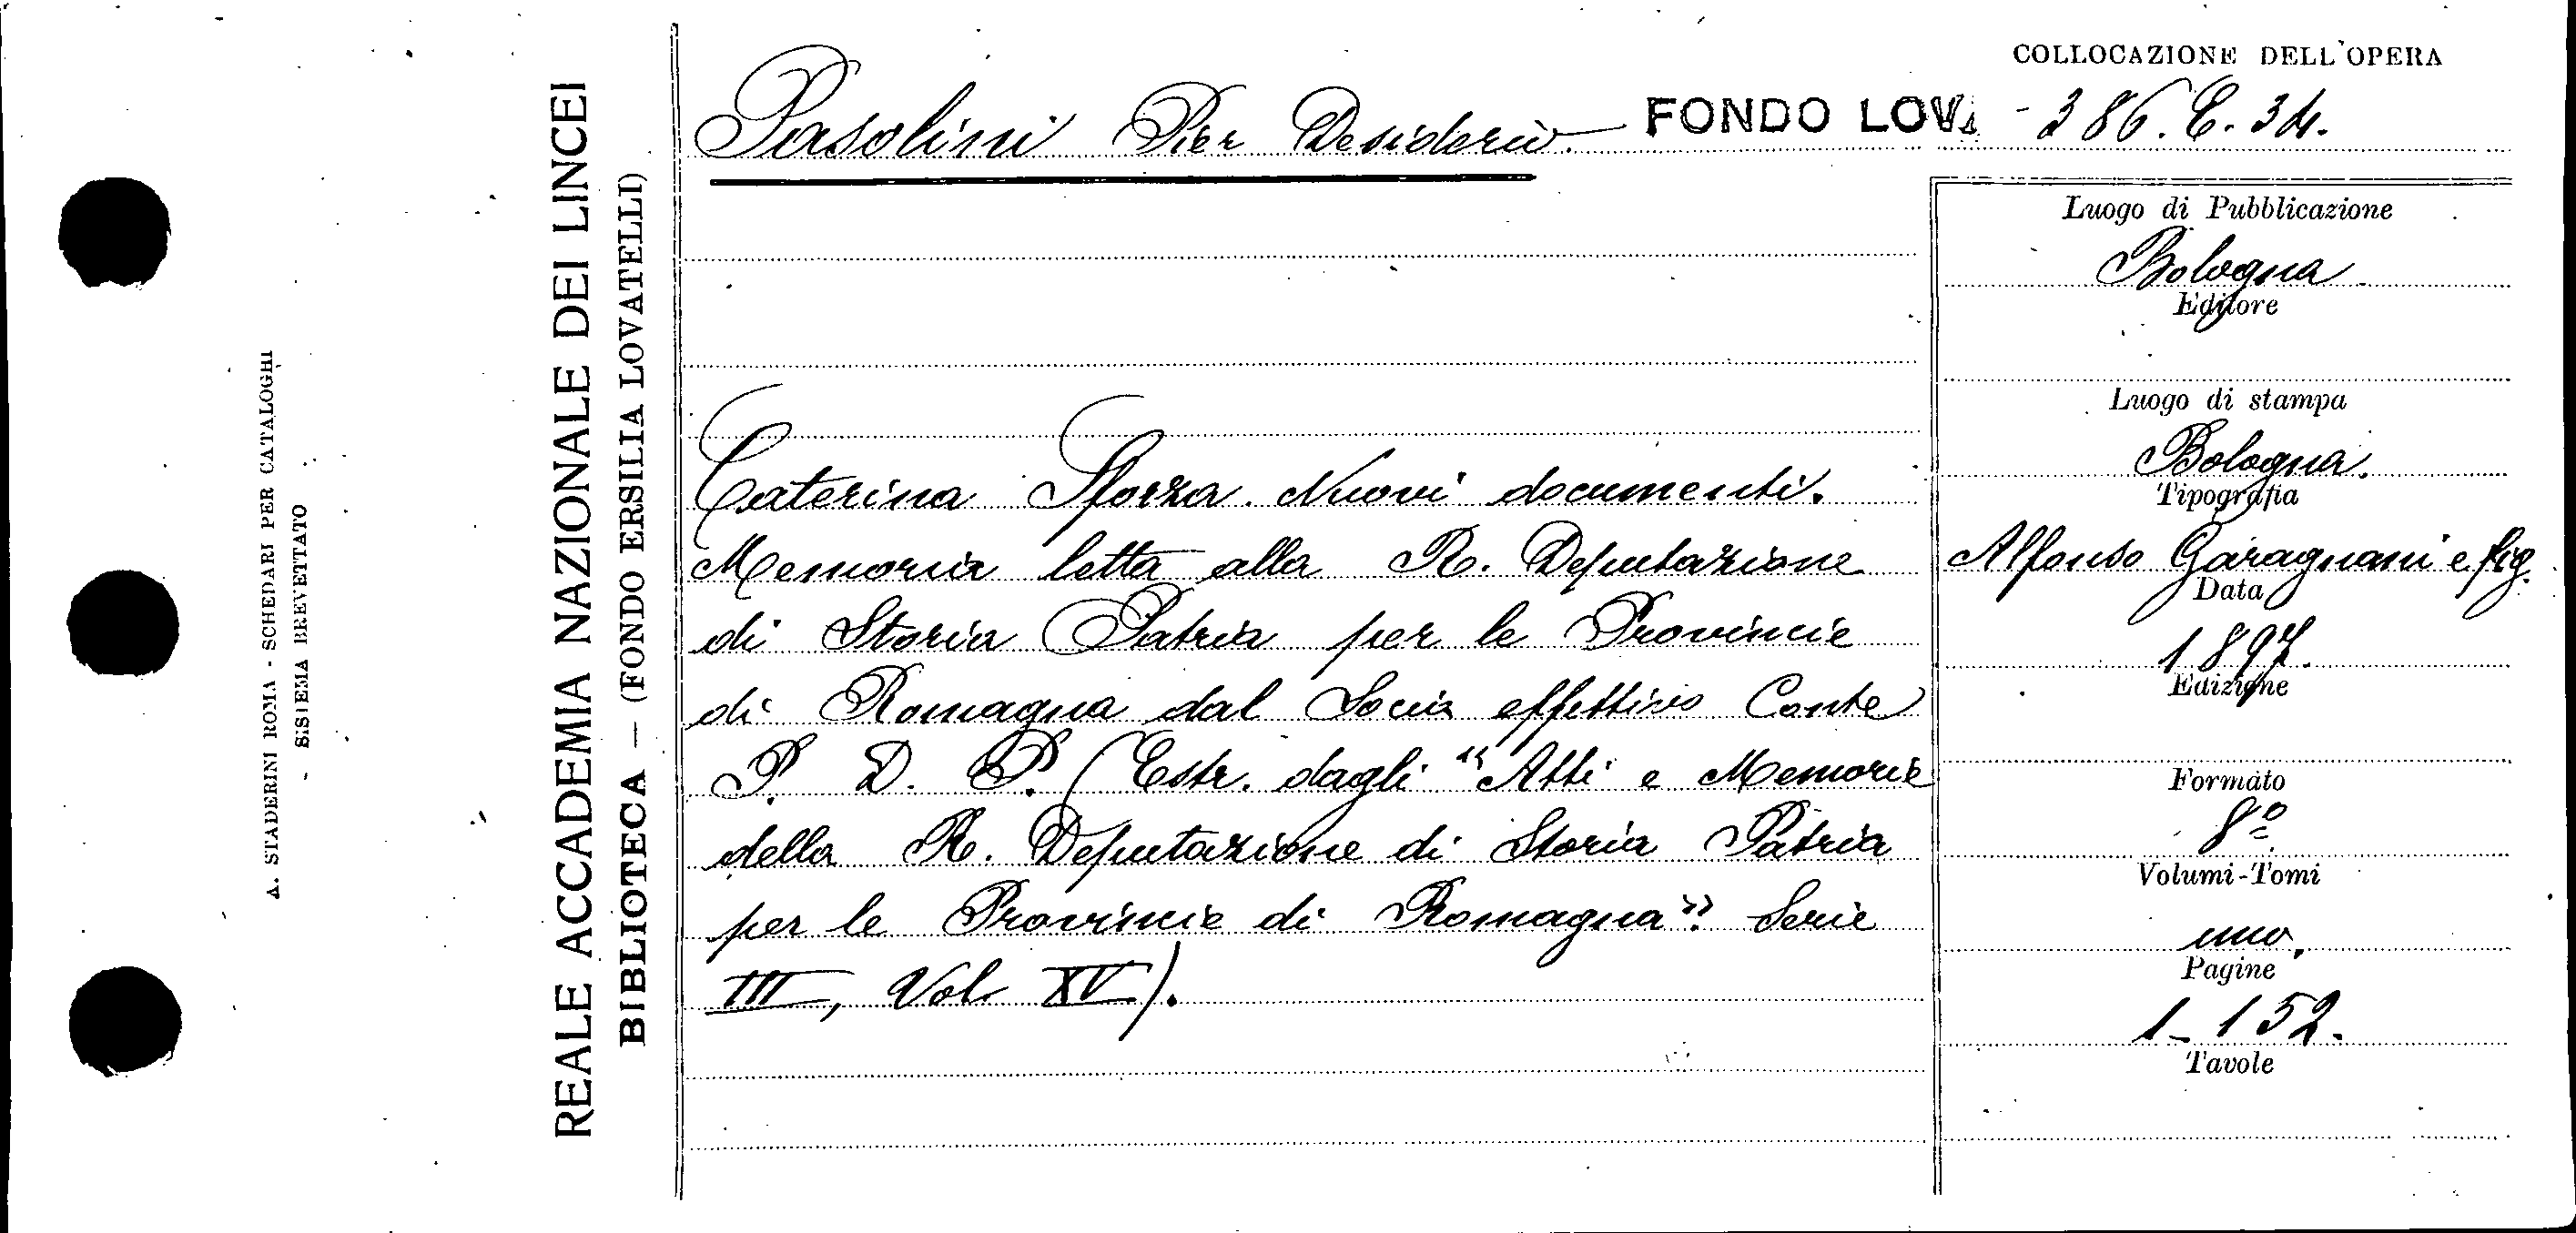 COLLOCAZIONE DELL'OPERA
Pasolini Pier Desiderio. FONDO LOV. - 386.C.34.
A. STADERINI ROMA - SCHEDARI PER CATALOGHI
SISTEMA BREVETTATO
REALE ACCADEMIA NAZIONALE DEI LINCEI
BIBLIOTECA — (FONDO ERSILIA LOVATELLI)
Caterina Sforza. Nuovi documenti.
Memoria letta alla R. Deputazione
di Storia Patria per le Provincie
di Romagna dal Socio effettivo Conte
P. D. P. (Estr. dagli "Atti e Memorie
della R. Deputazione di Storia Patria
per le Provincie di Romagna". Serie
III, Vol XV).
Luogo di Pubblicazione
Bologna
Editore
Luogo di stampa
Bologna.
Tipografia
Alfonso Garagnani e fig.
Data
1897.
Edizione
Formato
8º
Volumi-Tomi
uno.
Pagine
1-152.
Tavole